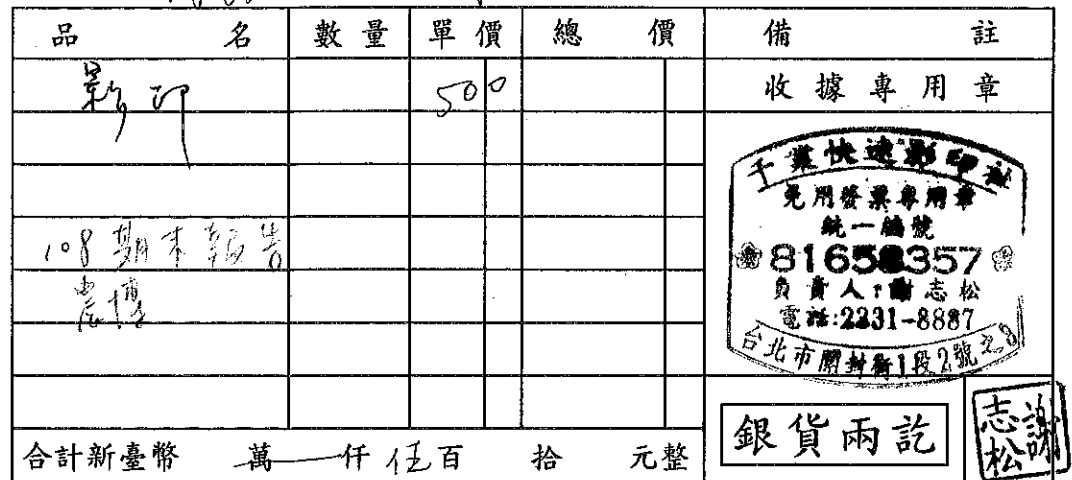 品名 數量 單價 總價 備註
影印 500 收據專用章
千業快速影印社
免用發票專用章
統一編號
357
108期末報告
負責人:謝志松
農博
電話:2331-8887
台北市開封街1段2號之8
銀貨兩訖 謝志松
合計新臺幣 萬 仟 伍百 拾 元整